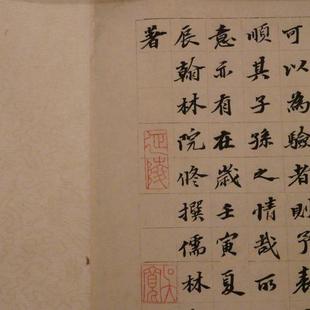 可以為驗者則予表
順其子孫之情哉所
意亦有在歲壬寅夏
辰翰林院修撰儒林
著
延陵